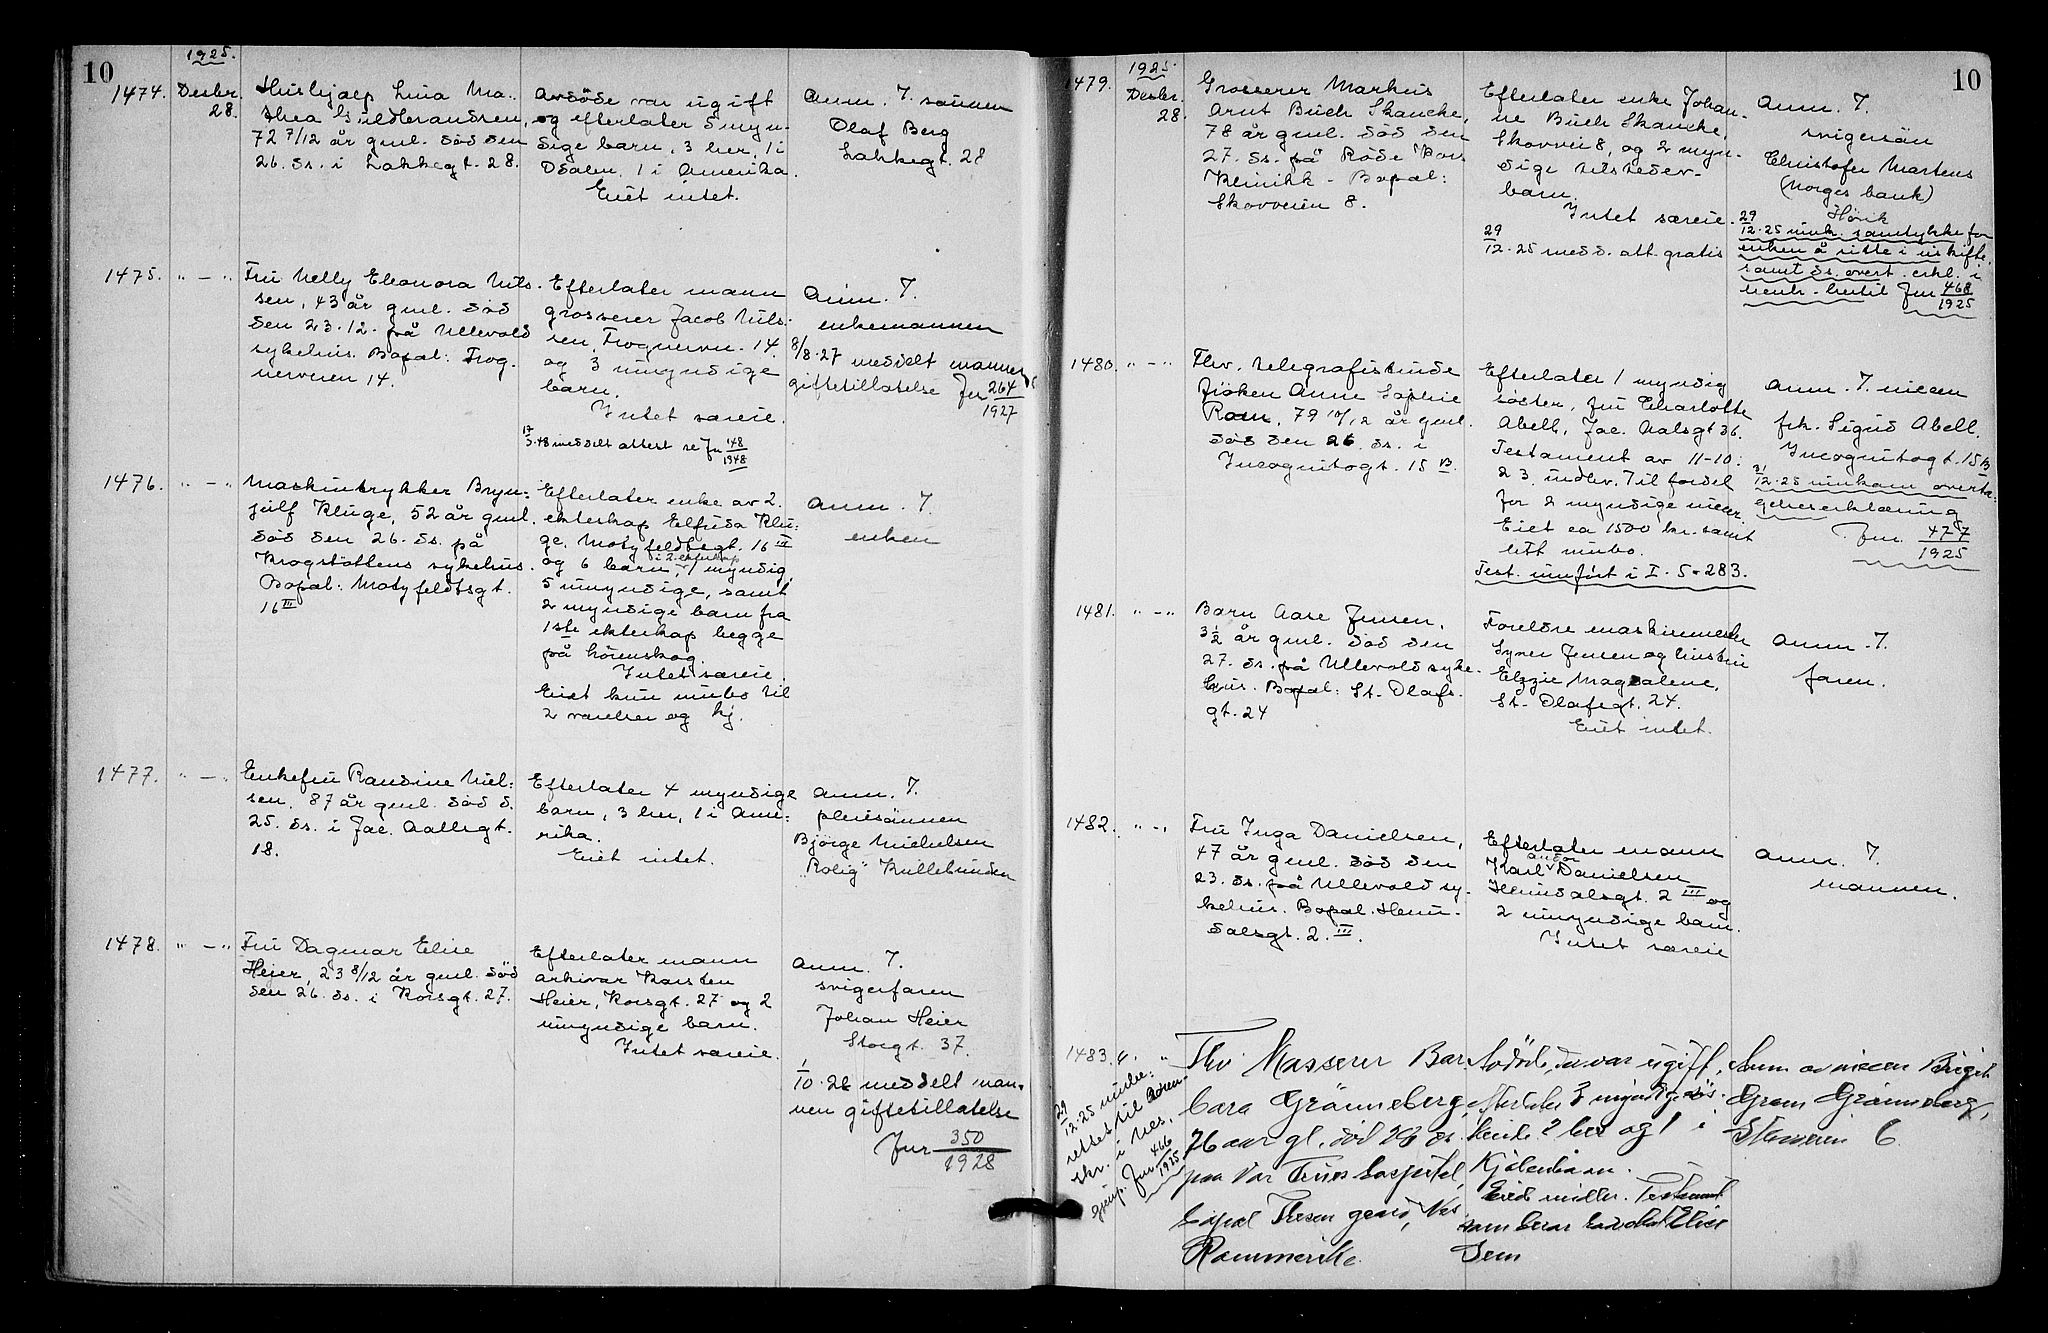 10
1925.
1474. Desbr. 28.
Hushjælp Lina Ma-
thea Guldbrandsen,
72 7/12 år gml. död den
26. ds. i Lakkegt. 28.
Avdöde var ugift
og efterlater 5 myn-
dige barn, 3 her, 1 i
Odalen, 1 i Amerika.
Eiet intet.
Anm. T. sönnen
Olaf Berg
Lakkegt. 28
1475. " — "
Fru Nelly Eleonora Nils-
sen, 43 år gml. död
den 23.12. på Ullevold
sykehus. Bopæl: Frog-
nerveien 14.
Efterlater mann
grosserer Jacob Nils-
sen, Frognervn. 14.
og 3 umyndige
barn.
Intet særeie.
17/3.48 meddelt attest se Jn 148/1948
Anm. T.
enkemannen
8/8.27 meddelt mannen
giftetillatelse Jnr 264/1927
1476. " — "
Maskintrykker Bryn-
julf Kluge, 52 år gml.
död den 26. ds. på
Krogstöttens sykehus.
Bopæl: Motzfeldtsgt.
16 III
Efterlater enke av 2.
ekteskap Elfrida Klu-
ge, Motzfeldtsgt. 16 III
i 2. ekteskap
og 6 barn, 1 myndig,
5 umyndige, samt
2 myndige barn fra
1ste ekteskap begge
på Lörenskog.
Intet særeie.
Eiet kun innbo til
2 værelser og kj.
Anm. T.
enken
1477. " — "
Enkefru Randine Niel-
sen, 87 år gml. död d.
25. ds. i Jac. Aallsgt.
18.
Efterlater 4 myndige
barn, 3 her, 1 i Ame-
rika.
Eiet intet.
Anm. T.
pleiesönnen
Björge Michelsen
"Rolig" Kullebunden
1478. " — "
Fru Dagmar Elise
Heier, 23 8/12 år gml. död
den 26. ds. i Korsgt. 27.
Efterlater mann
arkivar Karsten
Heier, Korsgt. 27 og 2
umyndige barn.
Intet særeie.
Anm. T.
svigerfaren
Johan Heier
Storgt. 37.
1/10.28 meddelt man-
nen giftetillatelse
Jnr 350/1928
10
1925.
1479. Desbr. 28.
Grosserer Markus
Arnt Buch Skancke,
78 år gml. död den
27. ds. på Röde Kors
Klinikk - Bopæl:
Skovveien 8.
Efterlater enke Johan-
ne Buch Skancke,
Skovvei 8, og 2 myn-
dige tilstedev-
barn.
Intet særeie.
29/12.25 medd. att. gratis
Anm. T.
svigersön
Christofer Martens
(Norges bank)
Hövik
29/12.25 innk. samtykke for
enken å sitte i uskifte,
samt ds. overt. erkl. i
henh. hertil Jnr 468/1925
1480. " — "
Fhv. telegrafistinde
fröken Anne Sophie
Rom, 79 10/12 år gml.
död den 26 ds. i
Incognitogt. 15 B.
Efterlater 1 myndig
söster, fru Charlotte
Abell, Jac. Aalsgt 36.
Testament av 11-10-
23. indlev. Til fordel
for 2 myndige niecer.
Eiet ca 1500 kr. samt
litt innbo.
Test. innfört i I. S=283.
Anm. T. niecen
frk. Sigrid Abell,
Incognitogt. 15 B
31/12.25 innkom overta-
gelseserklæring
Jnr. 477/1925
1481. " — "
Barn Aase Jensen,
3 1/2 år gml. död den
27. ds. på Ullevold syke-
hus. Bopæl: St. Olafs-
gt. 24
Foreldre maskinmester
Syver Jensen og hustru
Elzzie Magdalene,
St. Olafsgt. 24.
Eiet intet.
Anm. T.
faren.
1482. " — "
Fru Inga Danielsen,
47 år gml. död den
23. ds. på Ullevold sy-
kehus. Bopæl. Hems-
dalsgt. 2. III.
Efterlater mann
Karl Danielsen
Hemsdalsgt. 2 III og
2 umyndige barn.
Intet særeie
Anm. T.
mannen.
1483. " "
29/12.25 innbe-
rettet til Soren-
skr. i Nes,
Jnr 466/1925
Fhv Masserer Bar-
bara Grønneberg,
76 aar gl. död 28 ds.
paa Vor Frues hospital,
bopæl Thesen gaard, Nes
Rommerike.
Avdöde, der var ugift,
efterlater 3 myndige sös-
kende 2 her og 1 i
Kjöbenhavn.
Eied midler. Testament
som beror hos advokat Elias
Sem
Anm av niecen Birgit
Gram Grønneberg,
6